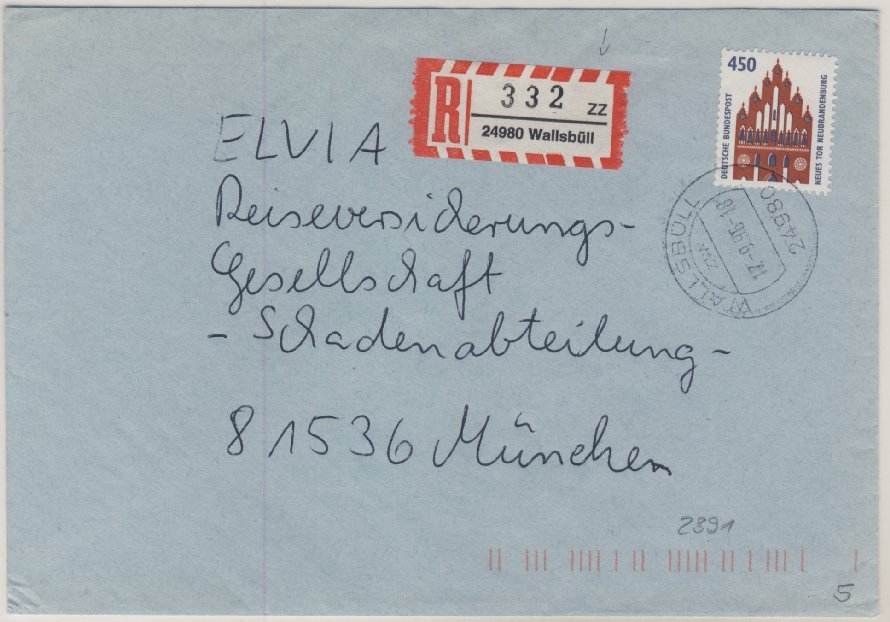 R 332 ZZ
24980 Wallsbüll
450
DEUTSCHE BUNDESPOST
NEUES TOR NEUBRANDENBURG
24980 WALLSBÜLL
17.-9.96-18
ZZ
ELVIA
Reiseversicherungs-
Gesellschaft
- Schadenabteilung -
81536 München
2391
5